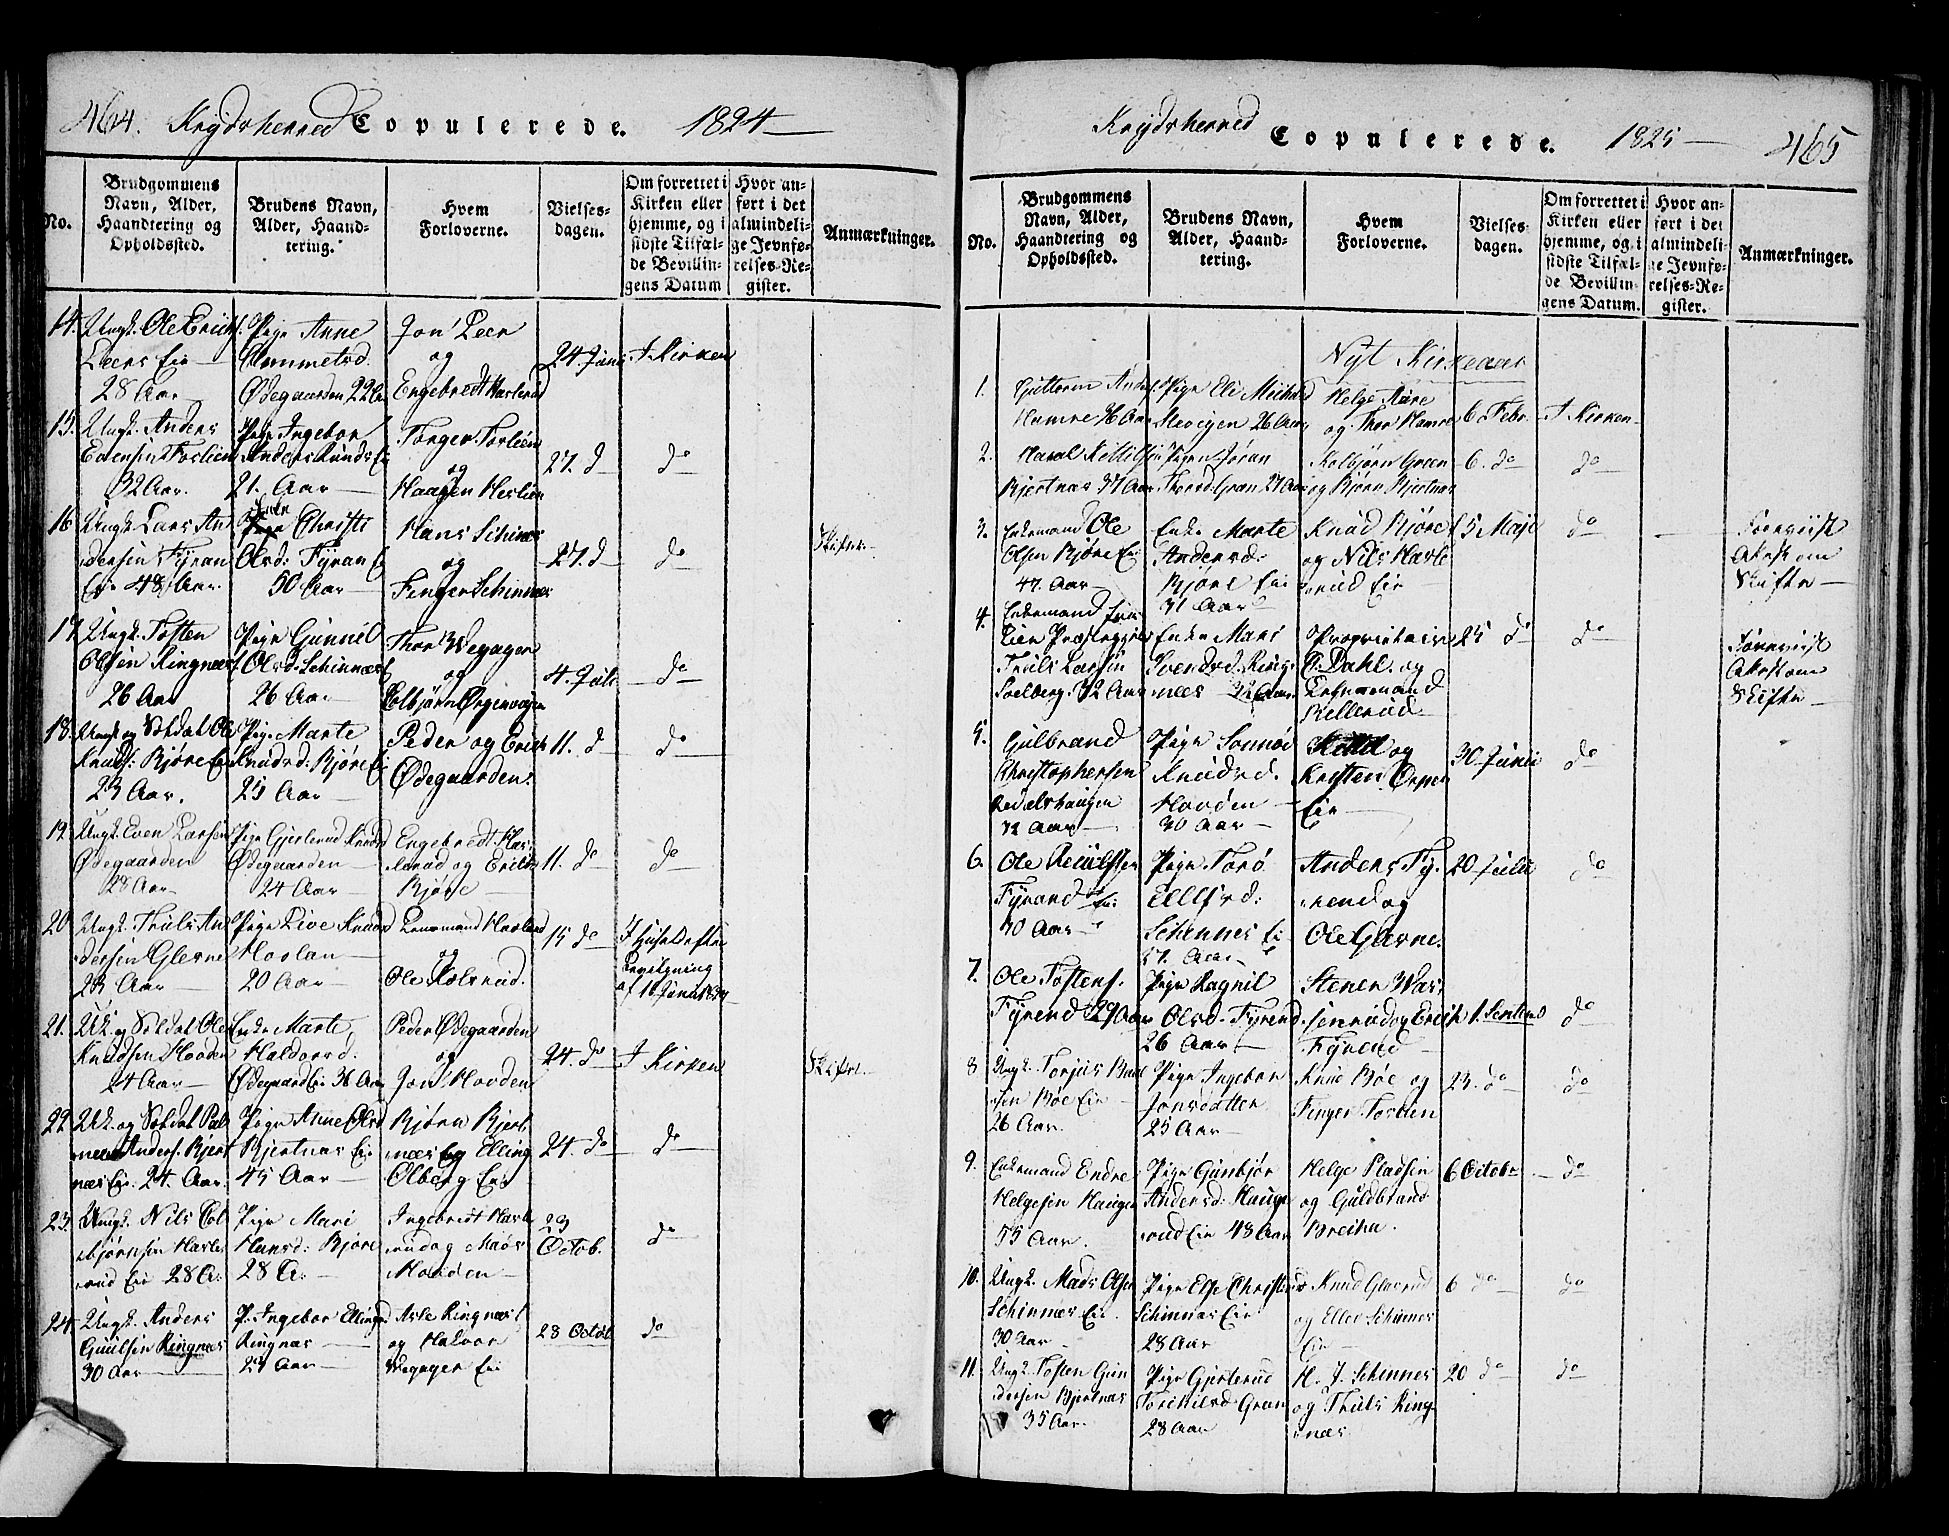 464. Krydsherred Copulerede. 1824
No.
Brudgommens Navn, Alder, Haandtering og Opholdssted.
Brudens Navn, Alder, Haandtering.
Hvem Forloverne.
Vielsesdagen.
Om forrettet i Kirken eller hjemme, og i sidste Tilfælde Bevillingens Datum
Hvor anført i det almindelige Jevnførelses-Register.
Anmærkninger.
14. Ungk. Ole Erichs. Leers Eie 28 Aar
Pige Anne Ødegaarden 22
Jon Leer og Engebredt Haslerud
24. Juni
I Kirken
15. Ungk. Anders Evensen Foslien 32 Aar.
Pige Ingebor Anders Runds Eie 21. Aar
Torger Foslien og Haagen Heslien
27. d
do
16 Ungk. Lars Andersen Fyran Eie 48 Aar.
Enke Christi Olsd: Fyran E 50 Aar
Hans Schinnes og Finger Schinnes
27. d
do
Skifter
17. Ungk. Tosten Olsen Ringnes 26 Aar
Pige Gunnil Olsd. Schinnes E 26 Aar
Thor Wegager og Colbjørn
4. Juli
do
18. Ungk og Soldat Ole Knuds: Bjøre Eie 23 Aar.
Pige Marte Knudsd: Bjøre E 25 Aar
Peder og Erich Ødegaarden
11. d
do
19. Ungk. Even Larsen Ødegaarden 28 Aar
Pige Gjertrud Knudsd Ødegaarden 24 Aar
Engebredt Haslerud og Erich Bjøre
11. do
do
20 Ungk. Truls Andersen Glesne 23 Aar
Pige Live Knudsd Hovlan 20 Aar
Lensmand Hovland og Ole
15 do
I Huset efter Bevilgning af
21. Uk. og Soldat Ole Knudsen Hovden 24 Aar
Enke Marte Haldorsd. Ødegaard Eie 36 Aar
Peder Ødegaarden og Jon Hovden
24. do
I Kirken
Skifte
22 Uk. og Soldat Anders. Bjertnæs Eie 24. Aar
Pige Anne Olsd Bjertnæs Eie 45 Aar
Bjørn Bjertnæs og Elling Olberg Eie
24. do
do
23. Ungk. Nils Colbjørnsen Haslerud Eie 28 A
Pige Mari Hansd: Bjøre 28 A.
Ingebredt Haslerud og Hovden
23 Octob.
do
24. Ungk. Anders Guulsen Ringnæs 30 Aar
P. Ingebor Ellingsd Ringnæs 25 Aar
Asle Ringnæs og Halvor Wegager Eie
28 Octob
do
Krydsherred Copulerede. 1825 465
No.
Brudgommens Navn, Alder, Haandtering og Opholdssted.
Brudens Navn, Alder, Haandtering.
Hvem Forloverne.
Vielsesdagen.
Om forrettet i Kirken eller hjemme, og i sidste Tilfælde Bevillingens Datum.
Hvor anført i det almindelige Jevnførelses-Register.
Anmærkninger.
Nyt Kirkeaar
1. Guttorm Anders. Hamre 36 Aar
Pige Eli Slevigen 26 Aar
Helge Aare og Thor Hamre
6 Febr.
I Kirken
2. Haral Kittilsen Bjertnæs 37 Aar
Pigen Jøran Thorsd: Gran 27 Aar
Kolbjørn Green og Bjørn Bjertnæs
6. do
do
3. Enkemand Ole Olsen Bjøre Eie 47. Aar
Enke Marte Andersd: Bjøre Eie 31 Aar
Knud Bjøre og Nils Haslerud Eie
15 Maji
do
Foreviist Attest om Skifte
4. Enkemand Truls Larsen Soelberg. 32 Aar
Enke Mari Svendsd. Ringnæs 32 Aar
Proprietaire P. Dahl. og Lensmand Bellerud
25 d
do
Foreviist Attest om Skifte
5. Gulbrand Christophersen 32 Aar
Pige Sonnøi Knudsd. Hovden 30 Aar
Ketil og Kristen Eie
30 Junii
do
6. Ole Reiulfsen Fyrand Eie 30 Aar
Pige Torø Ellefsd: Schinnes Ei 27. Aar
Anders Fyrend og Ole Glesne.
20 Julii
do
7. Ole Tostens. Fyrend 29 Aar
Pige Ragnil Olsd. Fyrend. 26 Aar
Stener og Erich Fyrend
1. Septemb
do
8 Ungk. Torjus Bøe Eie 26 Aar.
Pige Ingebor Jonsdatter 25 Aar
Knud Bøe og Finger Foslien
23. do
do
9. Enkemand Endre Helgesen Haugen 55 Aar.
Pige Gunbjør Andersd: Haugerud Eie 43 Aar
Helge Pladsen og Guldbrand Breiha.
6 Octobr
do
10. Ungk. Mads Olsen Schinnæs Eie. 30 Aar
Pige Else Christensd Schinnæs Eie 28 Aar
Knud Glesrud og Ellev Schinnes Eie
6 do
do
11. Ungk. Tosten Gundersen Bjertnæs 35 Aar.
Pige Gjertrud Torchilsd Gran 28 Aar
H. J. Schinnes og Truls Ringnæs
20 do
do